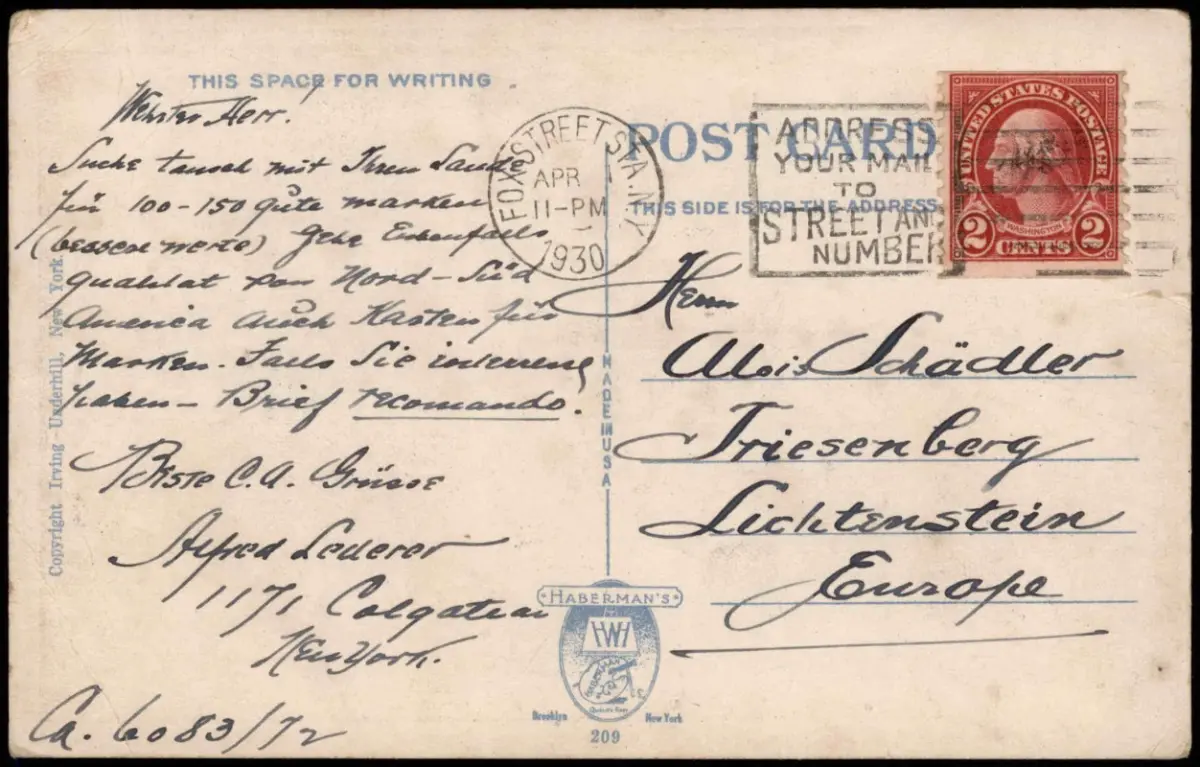 THIS SPACE FOR WRITING
Werter Herr!
Suche tausch mit Ihrem Lande
für 100-150 gute marken
(bessere werte) Gebe Ebenfalls
qualitat von Nord-Süd
America auch Kasten für
Marken. Falls Sie
haben - Brief recomando!
Beste C.A. Grüsse
Alfred Lederer
1171 Colgate
New York.
Ca. 6083/72
Copyright Irving Underhill, New York
FOX STREET STA. N.Y.
APR
11-PM
1930
POST CARD
THIS SIDE IS FOR THE ADDRESS
ADDRESS
YOUR MAIL
TO
STREET AND
NUMBER
UNITED STATES POSTAGE
WASHINGTON
2 CENTS 2
Herrn
Alois Schädler
Triesenberg
Lichtenstein
Europe
MADE IN USA
HABERMAN'S
Brooklyn New York
209